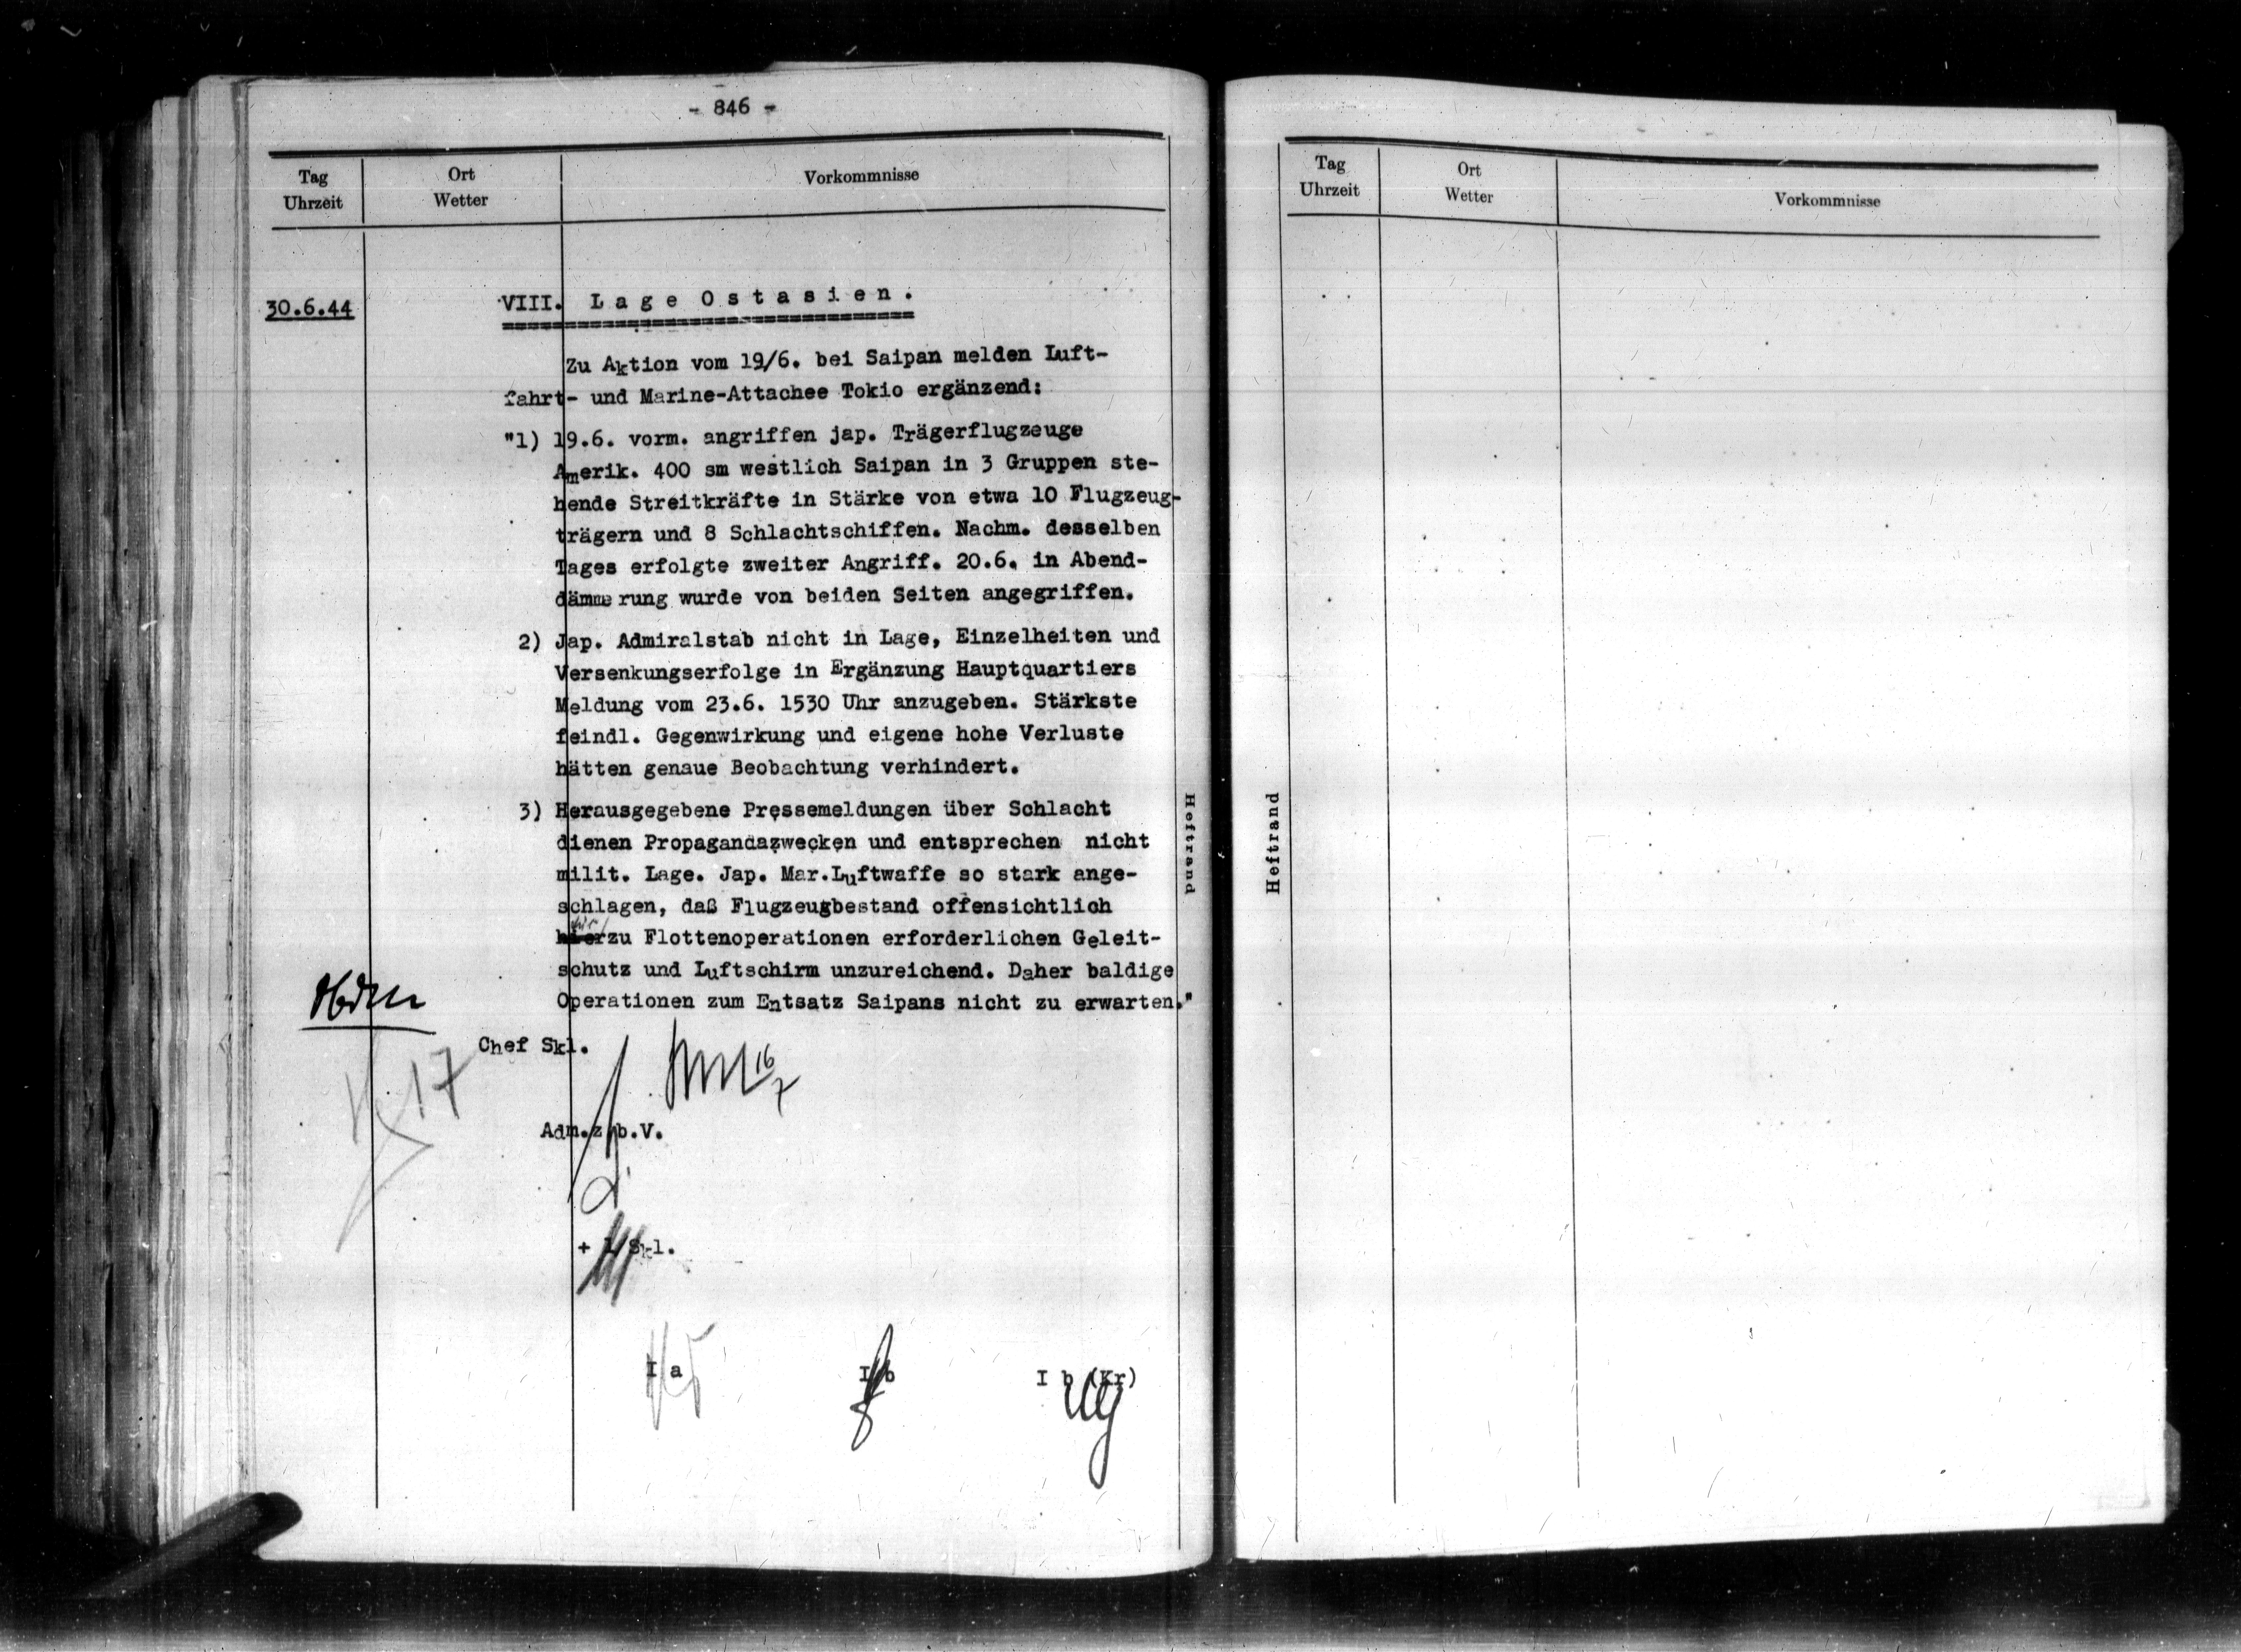 - 846 -
Tag
Uhrzeit
Ort
Wetter
Vorkommnisse
30.6.44
VIII. L a g e  O s t a s i e n .
Zu Aktion vom 19/6. bei Saipan melden Luft-
fahrt- und Marine-Attachee Tokio ergänzend:
"1) 19.6. vorm. angriffen jap. Trägerflugzeuge
Amerik. 400 sm westlich Saipan in 3 Gruppen ste-
hende Streitkräfte in Stärke von etwa 10 Flugzeug-
trägern und 8 Schlachtschiffen. Nachm. desselben
Tages erfolgte zweiter Angriff. 20.6. in Abend-
dämmerung wurde von beiden Seiten angegriffen.
2) Jap. Admiralstab nicht in Lage, Einzelheiten und
Versenkungserfolge in Ergänzung Hauptquartiers
Meldung vom 23.6. 1530 Uhr anzugeben. Stärkste
feindl. Gegenwirkung und eigene hohe Verluste
hätten genaue Beobachtung verhindert.
3) Herausgegebene Pressemeldungen über Schlacht
dienen Propagandazwecken und entsprechen nicht
milit. Lage. Jap. Mar.Luftwaffe so stark ange-
schlagen, daß Flugzeugbestand offensichtlich
hierzu Flottenoperationen erforderlichen Geleit-
schutz und Luftschirm unzureichend. Daher baldige
Operationen zum Entsatz Saipans nicht zu erwarten."
Chef Skl.
16/7
17
Adm.z.b.V.
+ 1/Skl.
I a
I b
I b (Kr)
Heftrand
Heftrand
Tag
Uhrzeit
Ort
Wetter
Vorkommnisse